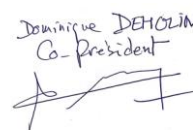 Dominique DEMOLIN
Co-Président